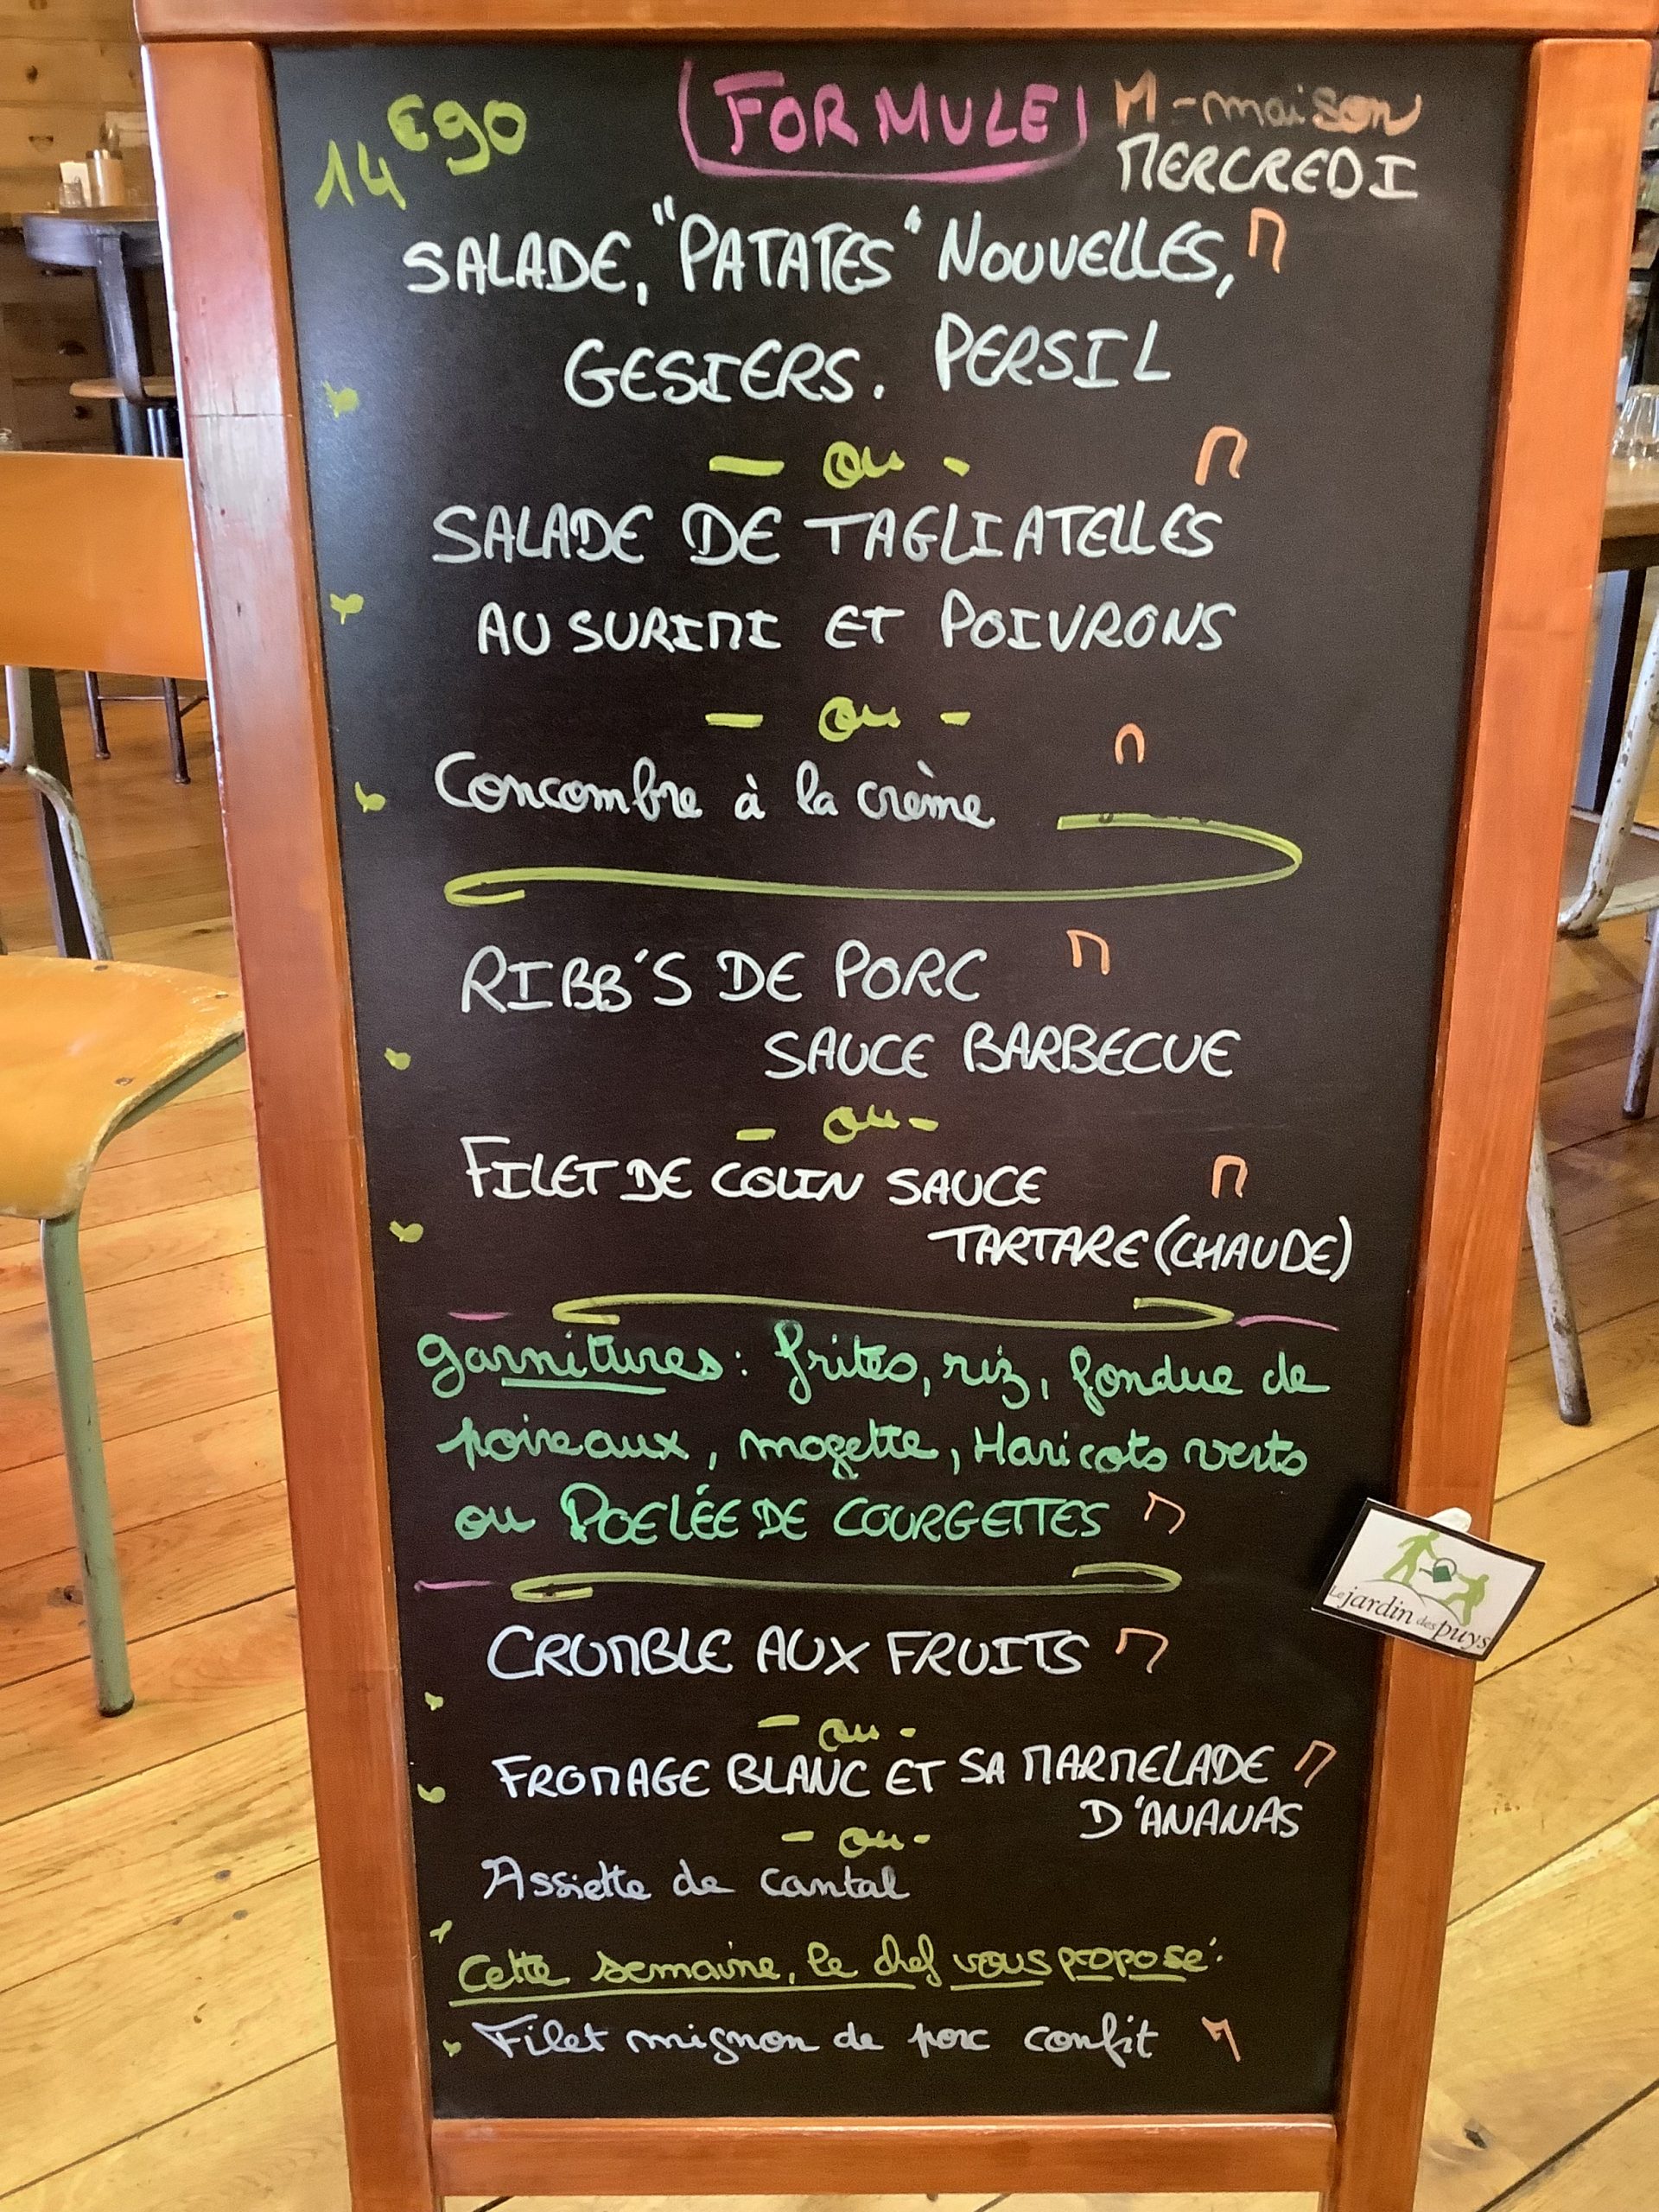 14€90 FORMULE M-maison
MERCREDI
SALADE, "PATATES" NOUVELLES, M
GESIERS. PERSIL
- ou -
M
SALADE DE TAGLIATELLES
AU SURIMI ET POIVRONS
- ou -
M
Concombre à la crème
RIBB'S DE PORC M
SAUCE BARBECUE
- ou -
FILET DE COLIN SAUCE M
TARTARE (CHAUDE)
garnitures: frites, riz, fondue de
poireaux, mogette, Haricots verts
ou POELÉE DE COURGETTES M
Le jardin des puys
CRUMBLE AUX FRUITS M
- ou -
FROMAGE BLANC ET SA MARMELADE M
D'ANANAS
- ou -
Assiette de Cantal
Cette semaine, le chef vous propose:
Filet mignon de porc confit M